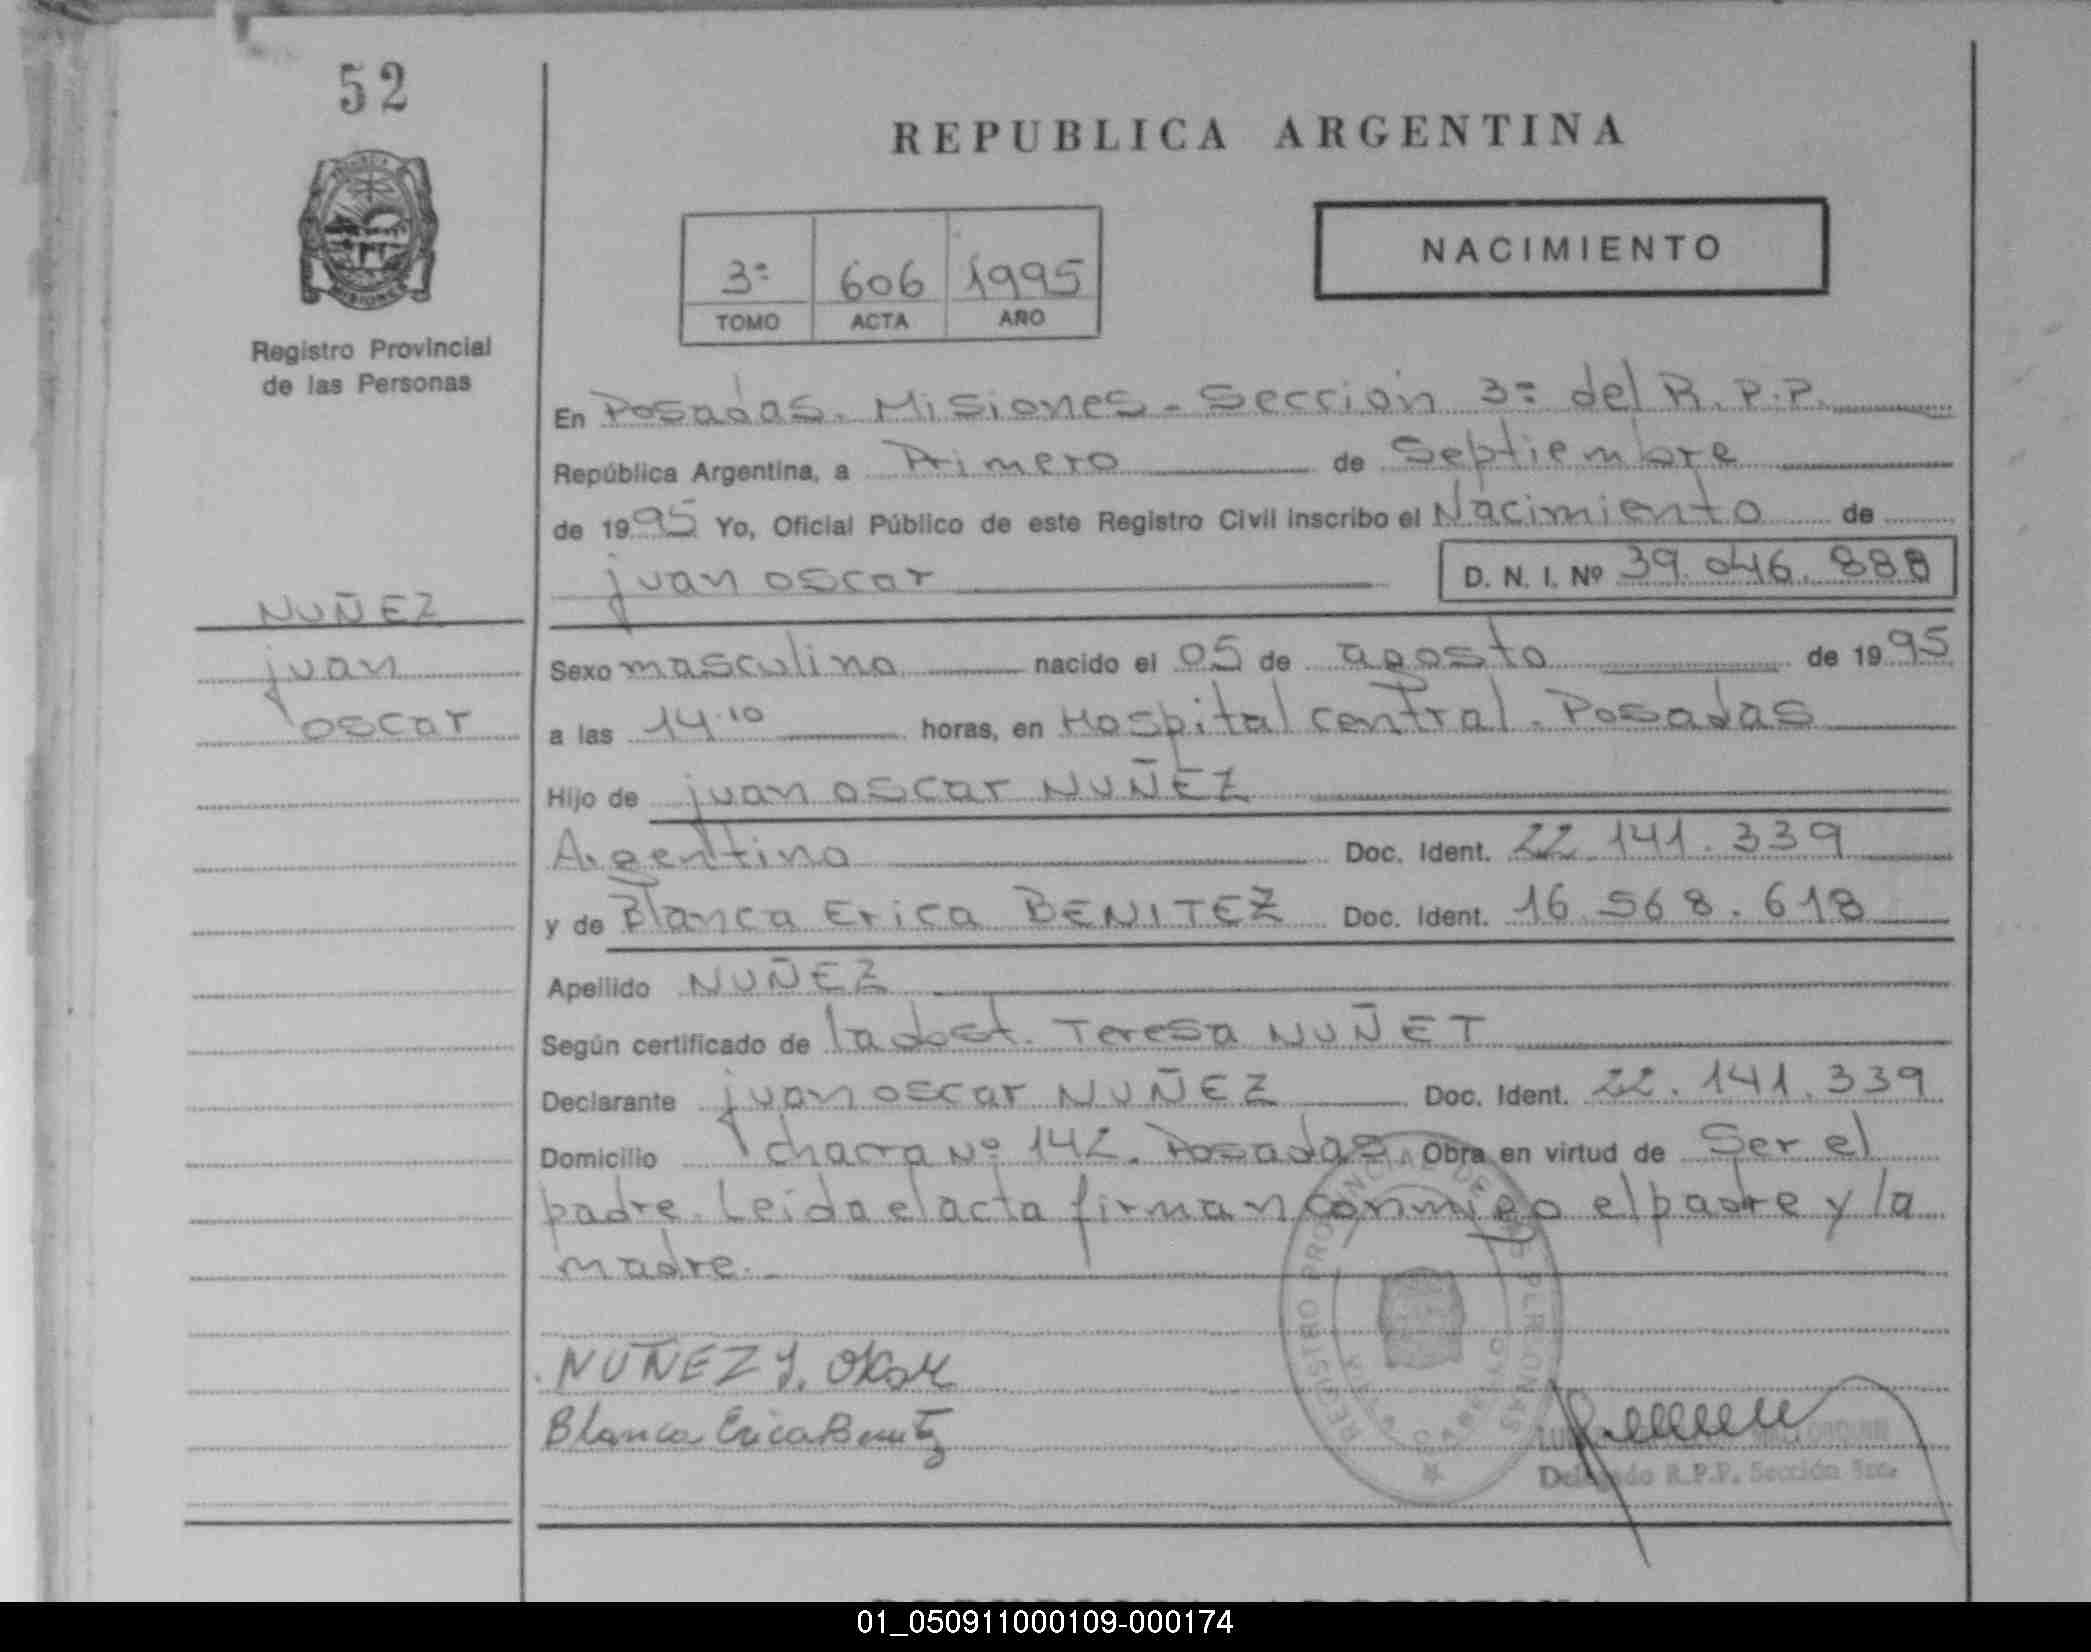 52
REPUBLICA ARGENTINA
NACIMIENTO
3ª 606 1995
TOMO ACTA AÑO
Registro Provincial
de las Personas
En Posadas. Misiones - Sección 3ª del R.P.P.
República Argentina, a Primero de Septiembre
de 1995 Yo, Oficial Público de este Registro Civil inscribo el Nacimiento de
juan oscar D. N. I. Nº 39.046.888
NUÑEZ
juan
oscar
Sexo masculino nacido el 05 de agosto de 1995
a las 14.10 horas, en Hospital central. Posadas
Hijo de juan oscar NUÑEZ
Argentino Doc. Ident. 22.141.339
y de Blanca Erica BENITEZ Doc. Ident. 16.568.618
Apellido NUÑEZ
Según certificado de la obst. Teresa NUÑET
Declarante juan oscar NUÑEZ Doc. Ident. 22.141.339
Domicilio chacra Nº 142. Posadas Obra en virtud de Ser el
padre. Leida el acta firman conmigo el padre y la
madre.
NUÑEZ J. Oscar
Blanca Erica Benitez
REGISTRO PROVINCIAL DE LAS PERSONAS
Delegado R.P.P. Sección 3ra.
01_050911000109-000174